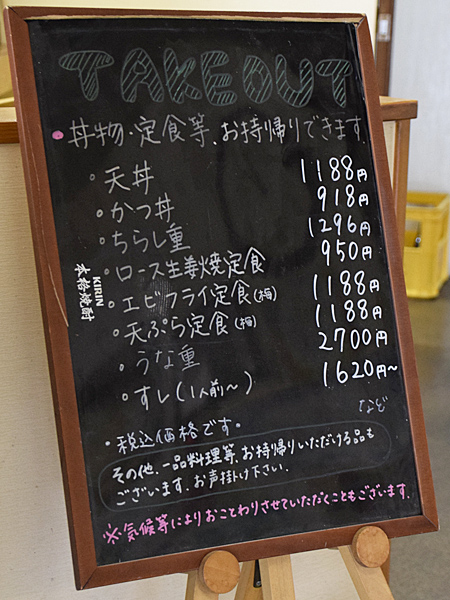 TAKEOUT
・丼物・定食等、お持帰りできます。
・天丼 1188円
・かつ丼 918円
・ちらし重 1296円
・ロース生姜焼定食 950円
・エビフライ定食(梅) 1188円
・天ぷら定食(梅) 1188円
・うな重 2700円
・すし(1人前〜) 1620円〜
など
・税込価格です・
その他、一品料理等、お持帰りいただける品も
ございます。お声掛け下さい。
※気候等によりおことわりさせていただくこともございます。
KIRIN
本格焼酎